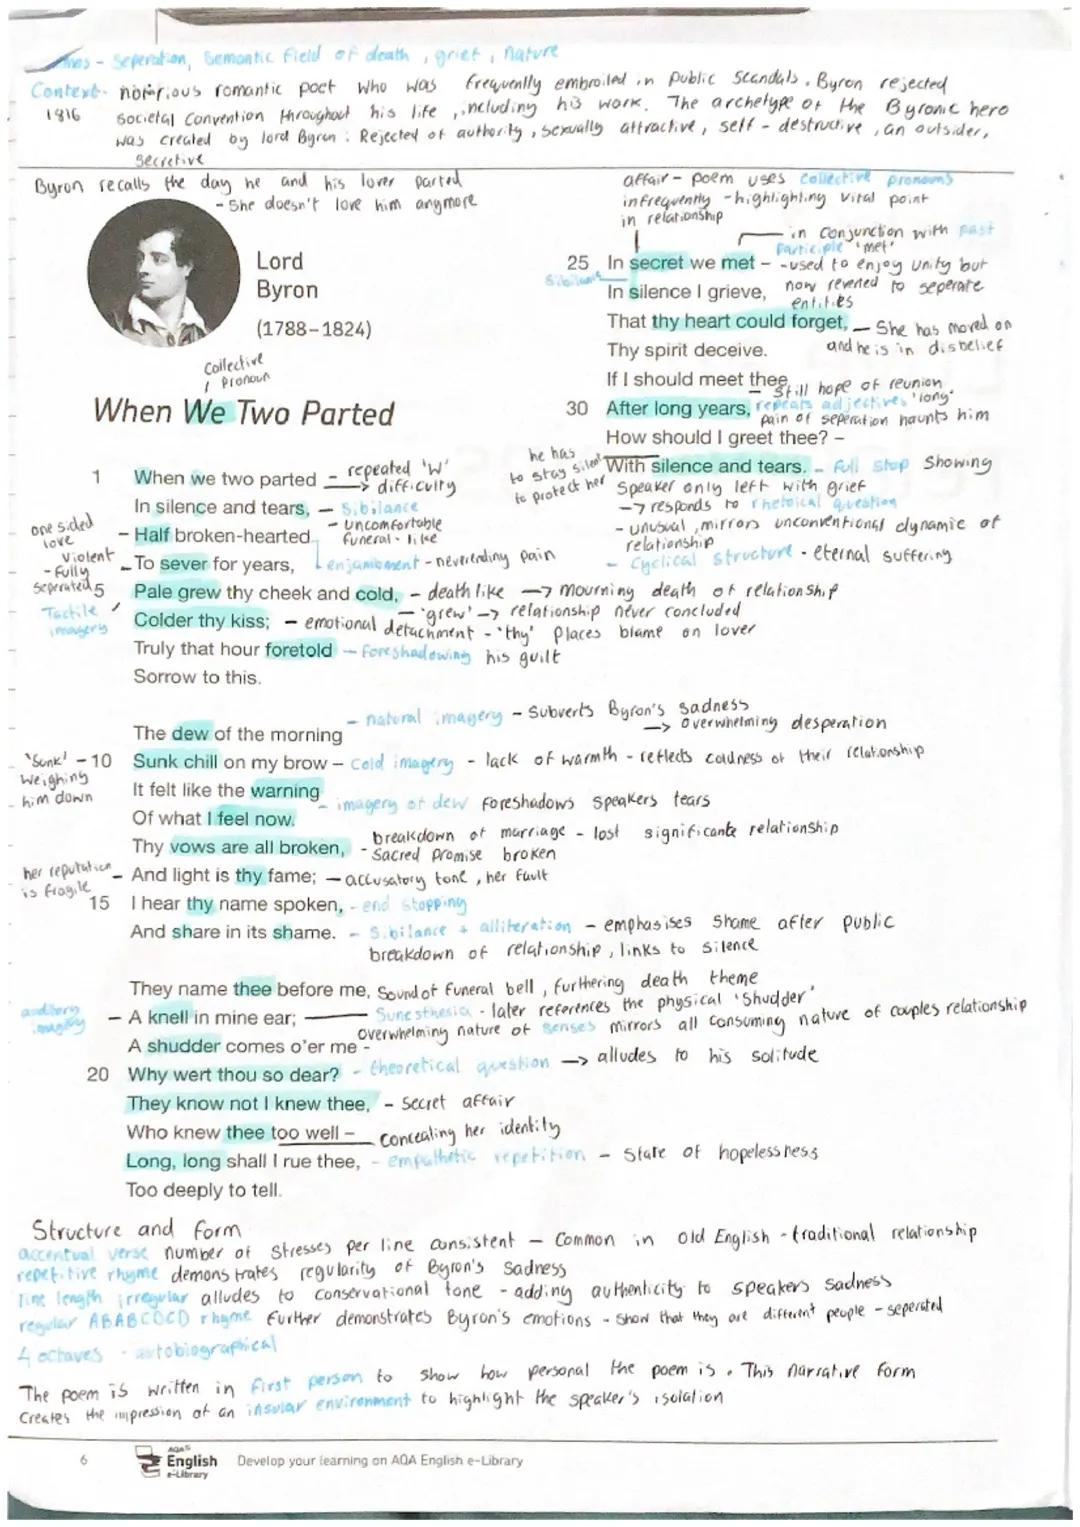 - Seperation, Semantic field of death, grief, nature
Context - notorious romantic poet who was frequently embroiled in public scandals. Byron rejected
1816 societal convention throughout his life, including his work. The archetype of the Byronic hero
was created by lord Byron : Rejected of authority, sexually attractive, self-destructive, an outsider,
secretive
Byron recalls the day he and his lover parted
- She doesn't love him anymore
Lord
Byron
(1788–1824)
Collective
Pronoun
When We Two Parted
1 When we two parted - repeated 'W'
-> difficulty
In silence and tears, - Sibilance
- uncomfortable
funeral-like
one sided
love
- Half broken-hearted
Violent
- fully
seperated
To sever for years, enjambment - neverending pain
5 Pale grew thy cheek and cold, - death like -> mourning death of relationship
- 'grew' -> relationship never concluded
Tactile
imagery
Colder thy kiss; - emotional detachment - 'thy' places blame on lover
Truly that hour foretold - foreshadowing his guilt
Sorrow to this.
The dew of the morning - natural imagery - Subverts Byron's sadness
-> overwhelming desperation
'Sunk' -
weighing
him down
10 Sunk chill on my brow - cold imagery - lack of warmth - reflects coldness of their relationship
It felt like the warning - imagery of dew foreshadows speakers tears
Of what I feel now.
Thy vows are all broken, - breakdown of marriage - lost significante relationship
- Sacred promise broken
her reputation
is fragile
- And light is thy fame; - accusatory tone, her fault
15 I hear thy name spoken, - end stopping
And share in its shame. - Sibilance + alliteration - emphasises shame after public
breakdown of relationship, links to silence
They name thee before me, Sound of funeral bell, furthering death theme
auditory
imagery
- A knell in mine ear; - Sunesthesia - later references the physical 'Shudder'
A shudder comes o'er me - overwhelming nature of senses mirrors all consuming nature of couples relationship
20 Why wert thou so dear? - theoretical question -> alludes to his solitude
They know not I knew thee, - secret affair
Who knew thee too well – concealing her identity
Long, long shall I rue thee, - empathetic repetition - State of hopelessness
Too deeply to tell.
affair - poem uses collective pronouns
infrequently - highlighting vital point
in relationship
- in conjunction with past
participle 'met'
25 In secret we met – - used to enjoy unity but
now reverted to seperate
entities
Sibilance
In silence I grieve,
That thy heart could forget, - She has moved on
and he is in disbelief
Thy spirit deceive.
If I should meet thee
- still hope of reunion
30 After long years, repeats adjectives 'long'
pain of seperation haunts him
How should I greet thee? –
he has
to stay silent
to protect her
With silence and tears. - full stop showing
speaker only left with grief
-> responds to rhetoical question
- unusual, mirrors unconventional dynamic of
relationship
- Cyclical structure - eternal suffering
Structure and form
accentual verse number of stresses per line consistent - Common in old English - traditional relationship
repetitive rhyme demonstrates regularity of Byron's sadness
Line length irregular alludes to conservational tone - adding authenticity to speakers sadness
regular ABABCDCD rhyme further demonstrates Byron's emotions - show that they are different people - seperated
4 octaves - autobiographical
The poem is written in first person to show how personal the poem is. This narrative form
Creates the impression of an insular environment to highlight the speaker's isolation
6
AQA
English
e-Library
Develop your learning on AQA English e-Library